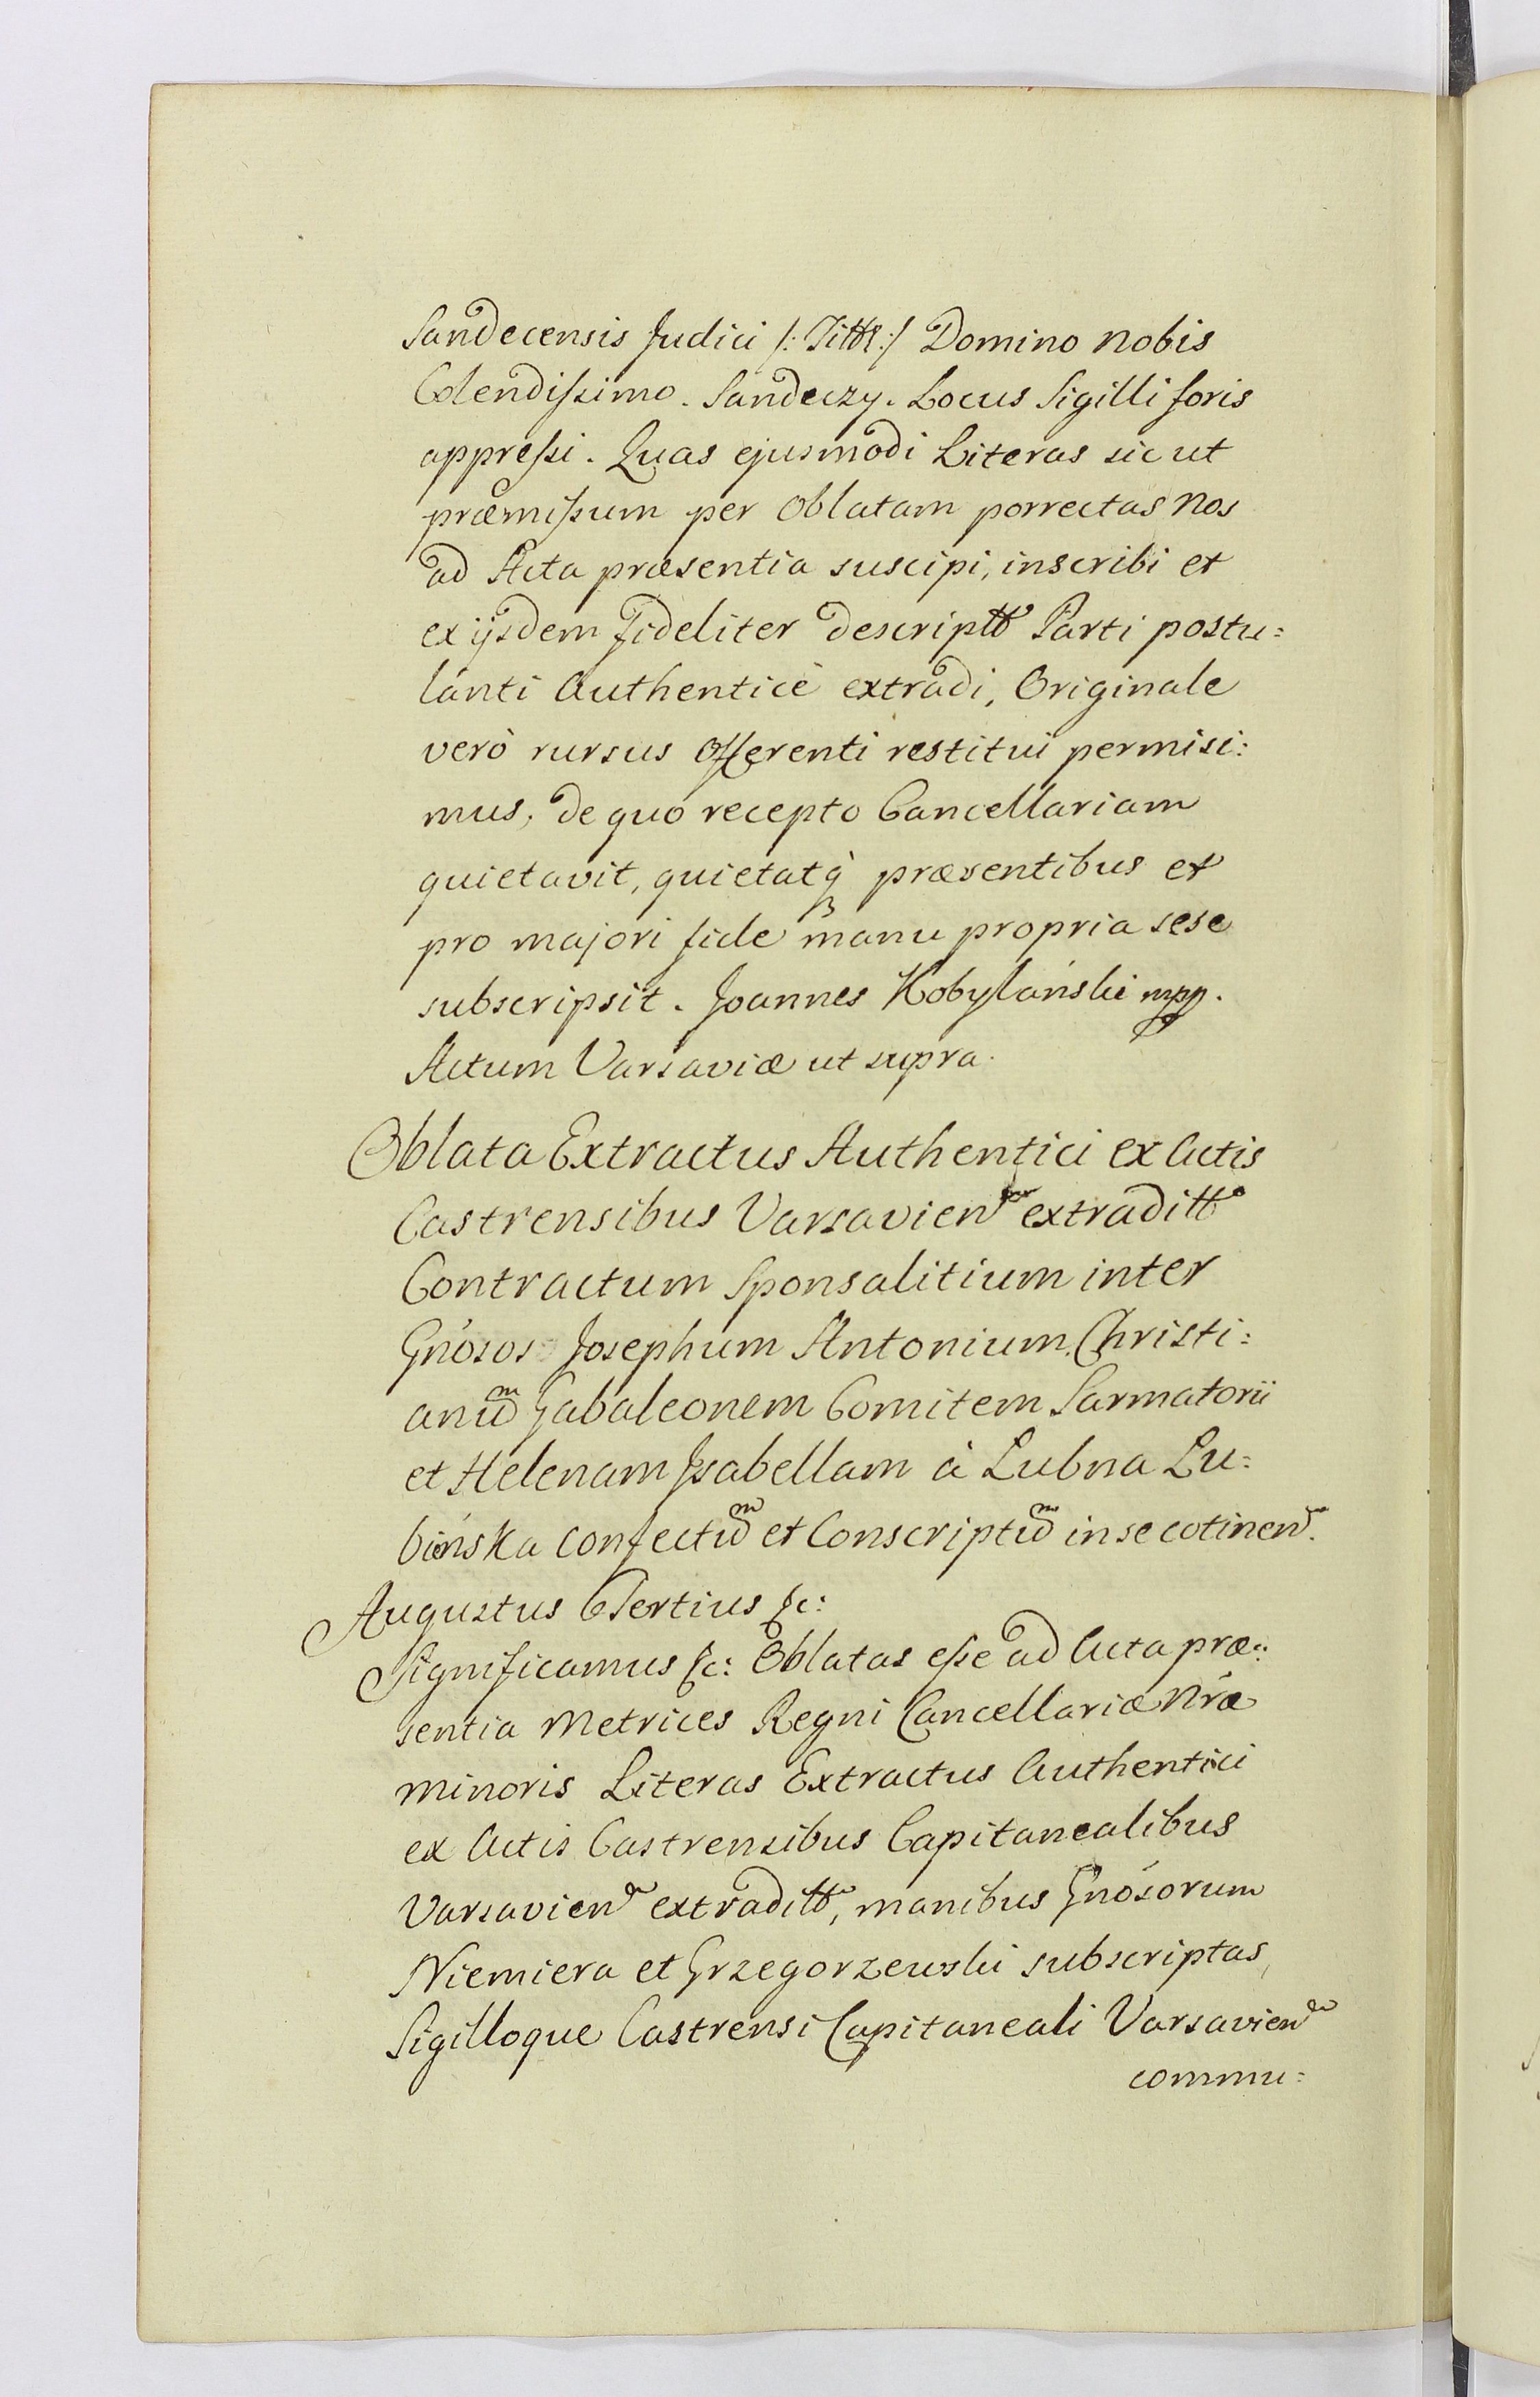 Sandecensis Judici /: Tittl :/ Domino Nobis
Colendißimo. Sandeczy. Locus Sigilli foris
appreßi. Quas ejusmodi Literas sic ut
præmißum per Oblatam porrectas Nos
ad Acta præsentia suscipi, inscribi et
ex ijsdem fideliter descriptt Parti postu=
lanti Authenticè extradi, Originale
verò rursus Offerenti restitui permisi:
mus, de quo recepto Cancellariam
quietavit, quietatq præsentibus et
pro majori fide manu propria sese
subscripsit. Joannes Kobylański mpp.
Actum Varsaviæ ut supra.
Oblata Extractus Authentici ex Actis
Castrensibus Varsavien extraditt
Contractum Sponsalitium inter
Gnósos Josephum Antonium Christi:
anum Gabaleonem Comitem Sarmatorii
et Helenam Isabellam à Lubna Lu=
bieńska confectum et Conscriptum in se cotinen.
Augustus Tertius &c:
Significamus &c: Oblatas eße ad Acta præ:
sentia Metrices Regni Cancellariæ Nræ
Minoris Literas Extractus Authentici
ex Actis Castrensibus Capitanealibus
Varsavien extraditt, manibus Gnósorum
Niemiera et Grzegorzewski subscriptas,
Sigilloque Castrensi Capitaneali Varsavien
commu=